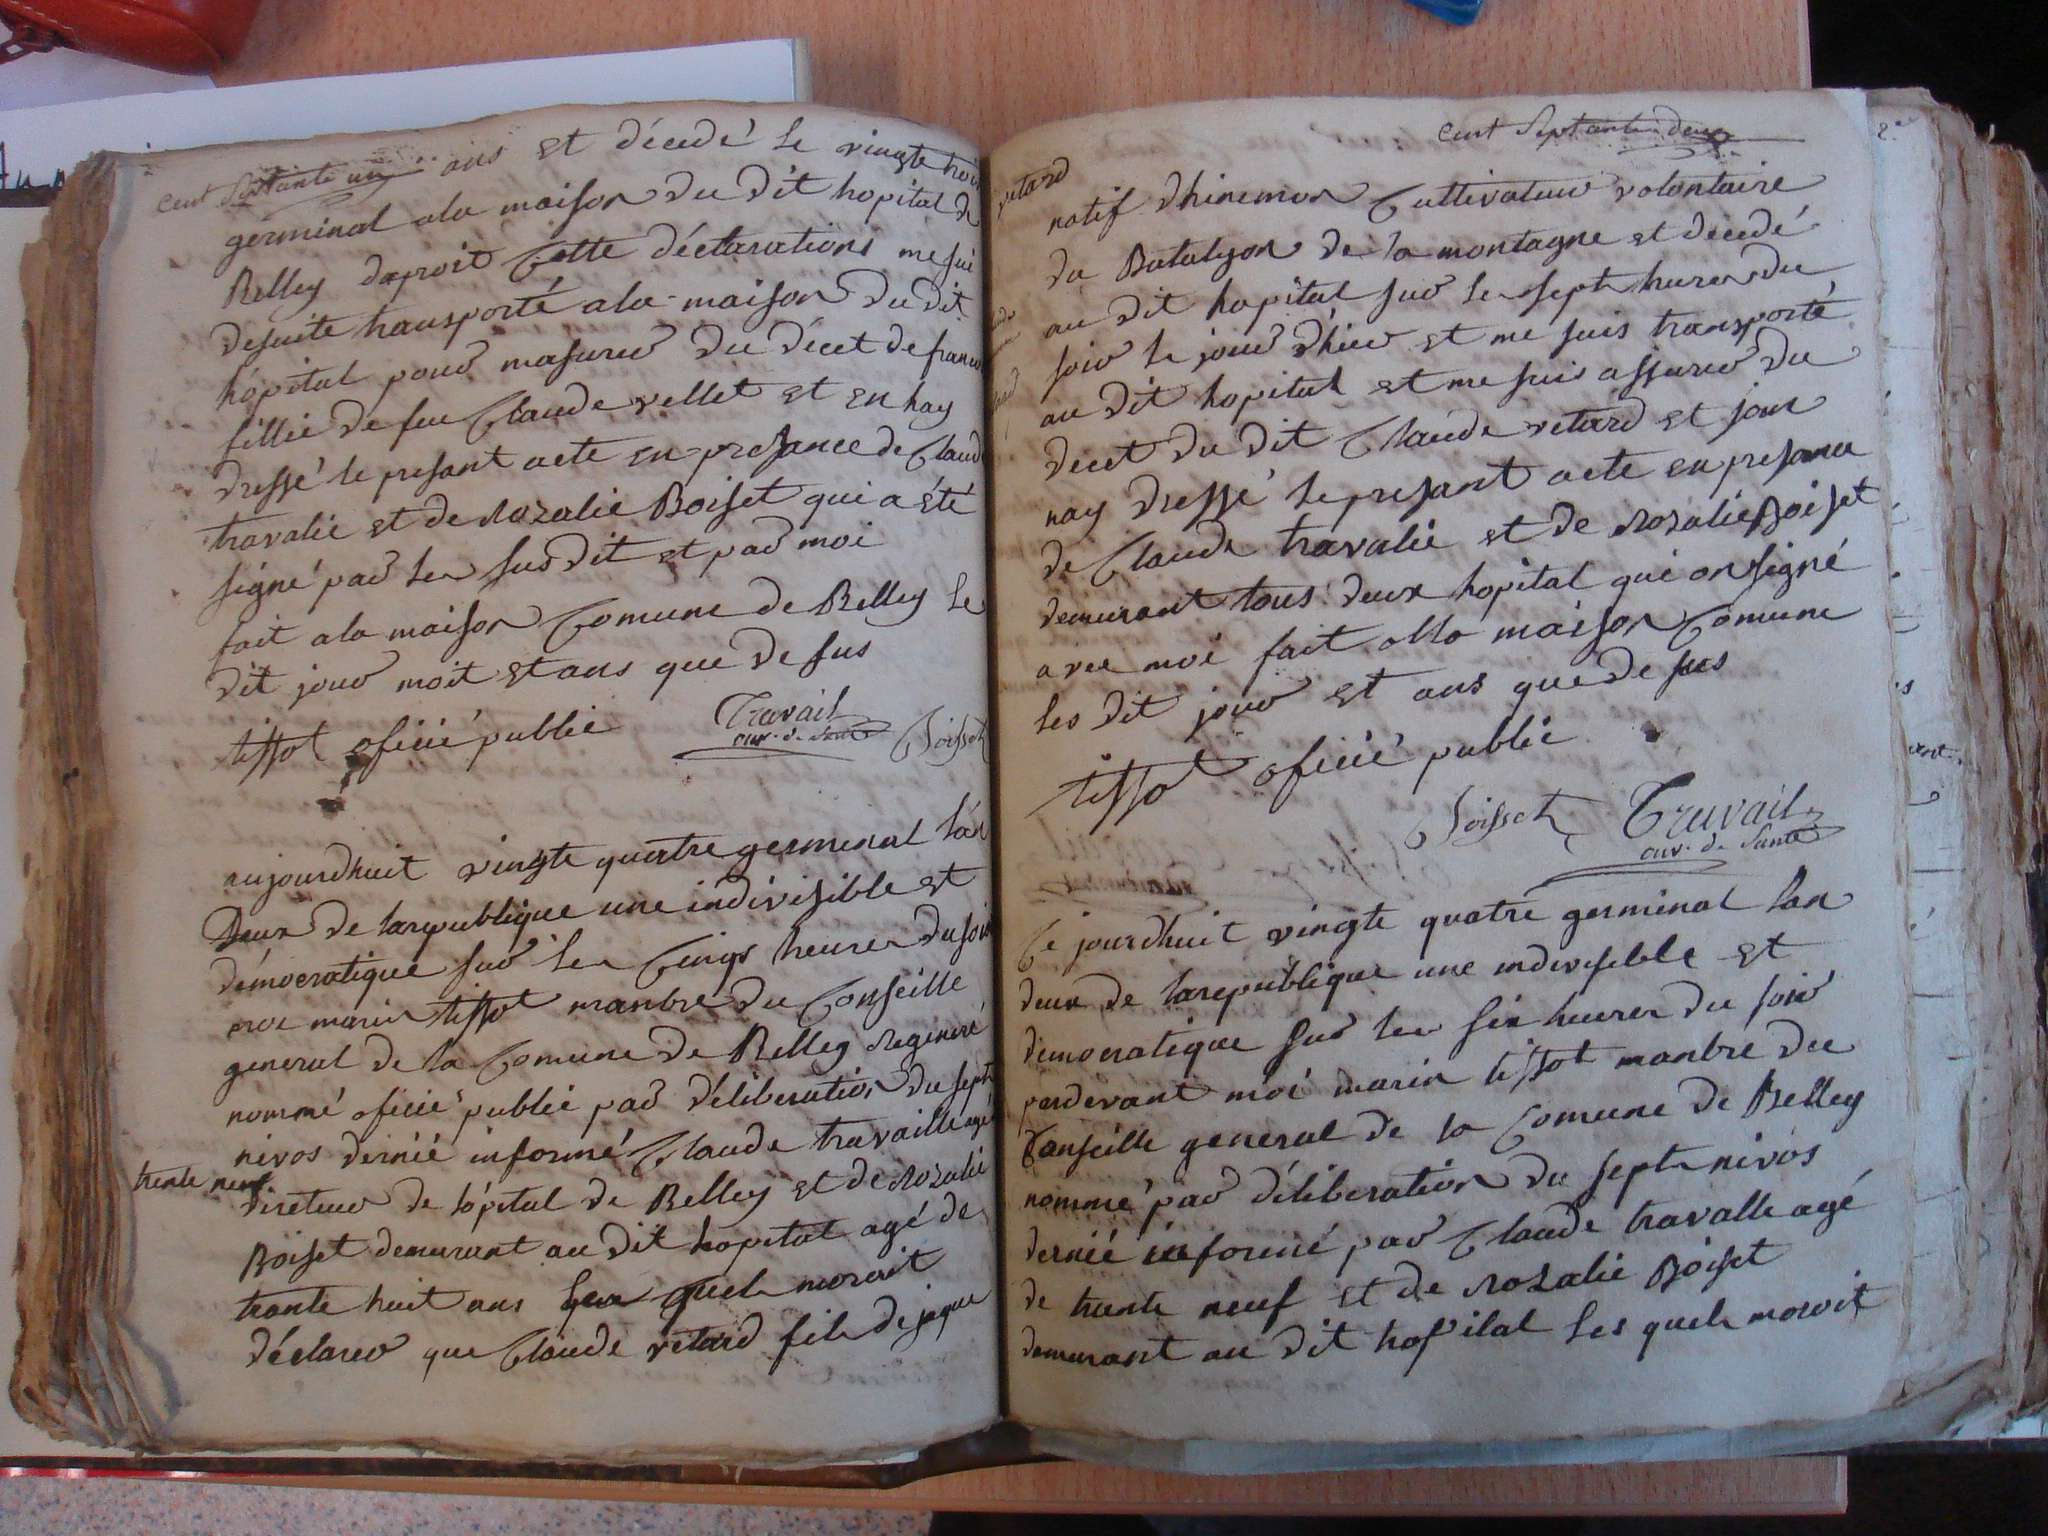 cent septante un
ans et décedé le vingte trois
gérminal ala maison du dit hopital de
Belley daproit Cette déclarations me sui
desuite transporté ala maison du dit
hópital pour masurer du décet de francois
fillie de feu Claude vellet et en hay
dressé le presant acte en presance de Claude
travalie et de Rozalie Boiset qui a été
signé par les susdit et par moi
fait ala maison Comune de Belley le
dit jour moit et ans que de sus
tissot oficié public
Travail
ouv. de Santé
Boisset
aujourdhuit vingte quatre germinal lan
Deux de larepublique une indivisible et
démocratique sur les Cinqs heures du soir
moi marin tissot manbre du Conseille
general de la Comune de Belley Regeneré
nommé oficié public par déliberation du sept
nivos dernié informé Claude travaille agé
trente neuf
direteur de lópital de Belley et de Rozalie
Boiset demurant au dit hopital agé de
trante huit ans quels moroit
déclarer que Claude retard fils de jaque
cent Septante deux
retard
natif dhinemon Cultivateur volontaire
du Batalyon de la montagne et décedé
au dit hopital sur les sept hures du
soir le jour dhier et me suis transporté
au dit hopital et me suis assurer du
decet du dit Claude retard et jan
nay dressé le presant acte en presance
de Claude travalie et de Rozalie Boiset
demurant tous deux hopital qui on signé
avec moi fait alla maison Comune
les dit jour et ans que de sus
tissot oficié public
Boisset Travail
ouv. de Santé
Ce jourdhuit vingte quatre germinal lan
deux de larepublique une indivisible et
democratique sur les six heures du soir
pardevant moi marin tissot manbre du
Conseille general de la Comune de Belley
nommé par déliberation du sept nivos
dernié informé par Claude travalle agé
de trente neuf et de Rozalie Boiset
demurant au dit hospital les quels moroit